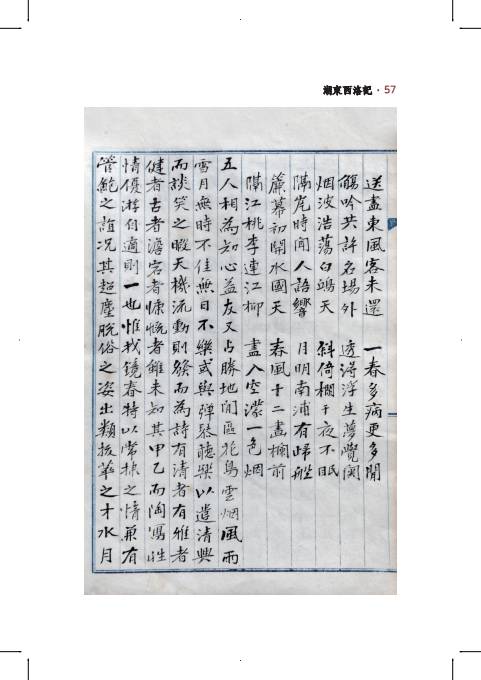 湖東西洛記 · 57
送盡東風客未還 一春多病更多閒
觴吟共許名場外 透得浮生夢覺關
烟波浩蕩白鷗天 斜倚欄干夜不眠
隔岸時聞人語響 月明南浦有歸船
簾幕初開水國天 春風十二畫欄前
隔江桃李連江柳 盡入空濛一色烟
五人相為知心益友又占勝地開區花鳥雲烟風雨
雪月無時不佳無日不樂或與彈琴聽樂以遣清興
而談笑之暇天機流動則發而為詩有清者有雅者
健者古者澹宕者慷慨者雖未知其甲乙而陶寫性
情優游自適則一也惟我鏡春特以常棣之情兼有
管鮑之誼况其超塵脫俗之姿出類拔萃之才水月